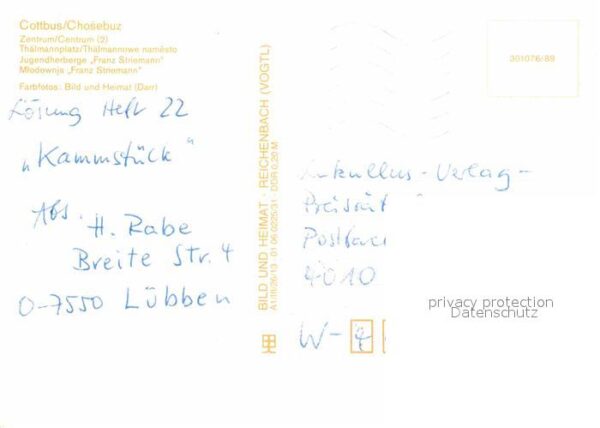 Cottbus/Chosebuz
Zentrum/Centrum (2)
Thälmannplatz/Thälmannowe naměsto
Jugendherberge „Franz Striemann"
Młodownja „Franz Striemann"
Farbfotos: Bild und Heimat (Darr)
Lösung Heft 22
„Kammstück"
Abs. H. Rabe
Breite Str. 4
O-7550 Lübben
BILD UND HEIMAT · REICHENBACH (VOGTL)
A1/III/26/13 · 01 06 0225/31 · DDR 0,20 M
301076/89
-Verlag-
4010
W-4
privacy protection
Datenschutz